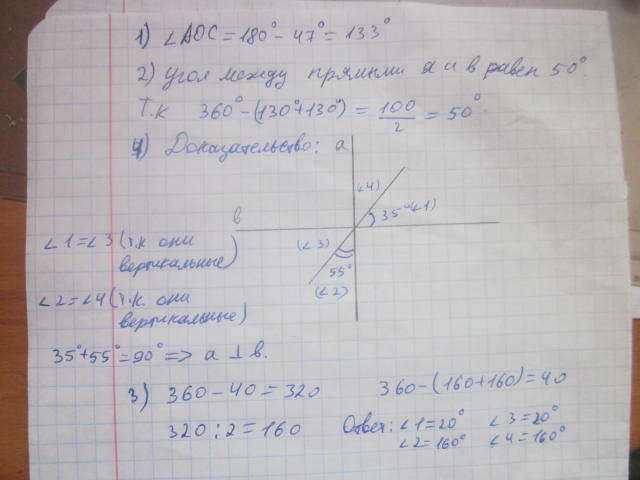 1) ∠AOC = 180° - 47° = 133°
2) Угол между прямыми а и в равен 50°
Т.к 360° - (130° + 130°) = 100/2 = 50°
4) Доказательство: а
∠4)
в
35° ∠1)
∠1 = ∠3 (т.к они вертикальные)
(∠3)
55°
(∠2)
∠2 = ∠4 (т.к. они вертикальные)
35° + 55° = 90° => а ⊥ в.
3) 360 - 40 = 320
320 : 2 = 160
360 - (160 + 160) = 40
Ответ: ∠1 = 20° ∠3 = 20°
∠2 = 160° ∠4 = 160°